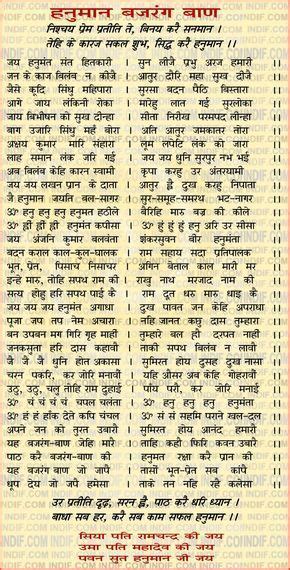 हनुमान बजरंग बाण
निश्चय प्रेम प्रतीति ते, बिनय करै सनमान ।
तेहि के कारज सकल शुभ, सिद्ध करै हनुमान ।।
जय हनुमंत संत हितकारी सुन लीजै प्रभु अरज हमारी
जन के काज बिलंब न कीजै आतुर दौरि महा सुख दीजै
जैसे कूदि सिंधु महिपारा सुरसा बदन पैठि बिस्तारा
आगे जाय लंकिनी रोका मारेहु लात गई सुरलोका
जाय बिभीषन को सुख दीन्हा सीता निरखि परमपद लीन्हा
बाग उजारि सिंधु महँ बोरा अति आतुर जमकातर तोरा
अक्षय कुमार मारि संहारा लूम लपेटि लंक को जारा
लाह समान लंक जरि गई जय जय धुनि सुरपुर नभ भई
अब बिलंब केहि कारन स्वामी कृपा करहु उर अंतरयामी
जय जय लखन प्रान के दाता आतुर ह्वै दुख करहु निपाता
जै हनुमान जयति बल-सागर सुर-समूह-समरथ भट-नागर
ॐ हनु हनु हनु हनुमंत हठीले बैरिहि मारु बज्र की कीले
ॐ ह्नीं ह्नीं ह्नीं हनुमंत कपीसा ॐ हुं हुं हुं हनु अरि उर सीसा
जय अंजनि कुमार बलवंता शंकरसुवन बीर हनुमंता
बदन कराल काल-कुल-घालक राम सहाय सदा प्रतिपालक
भूत, प्रेत, पिसाच निसाचर अगिन बेताल काल मारी मर
इन्हे मारु, तोहि सपथ राम की राखु नाथ मरजाद नाम की
सत्य होहु हरि सपथ पाई कै राम दूत धरु मारु धाइ कै
जय जय जय हनुमंत अगाधा दुख पावत जन केहि अपराधा
पूजा जप तप नेम अचारा नहिं जानत कछु दास तुम्हारा
बन उपबन मग गिरि गृह माहीं तुम्हारे बल हौं डरपत नाहीं
जनकसुता हरि दास कहावौ ताकी सपथ बिलंब न लावौ
जै जै जै धुनि होत अकासा सुमिरत होय दुसह दुख नासा
चरन पकरि, कर जोरि मनावौं यहि औसर अब केहि गोहरावौं
उठु, उठु, चलु तोहि राम दुहाई पाँय परौं, कर जोरि मनाई
ॐ चं चं चं चं चपल चलंता ॐ हनु हनु हनु हनु हनुमंता
ॐ हं हं हाँक देते कपि चंचल ॐ सं सं सहमि पराने खल-दल
अपने जन को तुरत उबारौ सुमिरत होय आनंद हमारौ
यह बजरंग-बाण जेहि मारै ताहि कही फिरि कवन उबारै
पाठ करै बजरंग-बाण की हनुमत रक्षा करै प्रान की
यह बजरंग बाण जो जापै तासों भूत-प्रेत सब कांपै
धूप देय जो जपै हमेसा ताके तन नहिं रहै कलेसा
उर प्रतीति दृढ़, सरन ह्वै, पाठ करै धरि ध्यान ।
बाधा सब हर, करै सब काम सफल हनुमान ।।
सिया पति रामचन्द्र की जय
उमा पति महादेव की जय
पवन सुत हनुमान जी जय